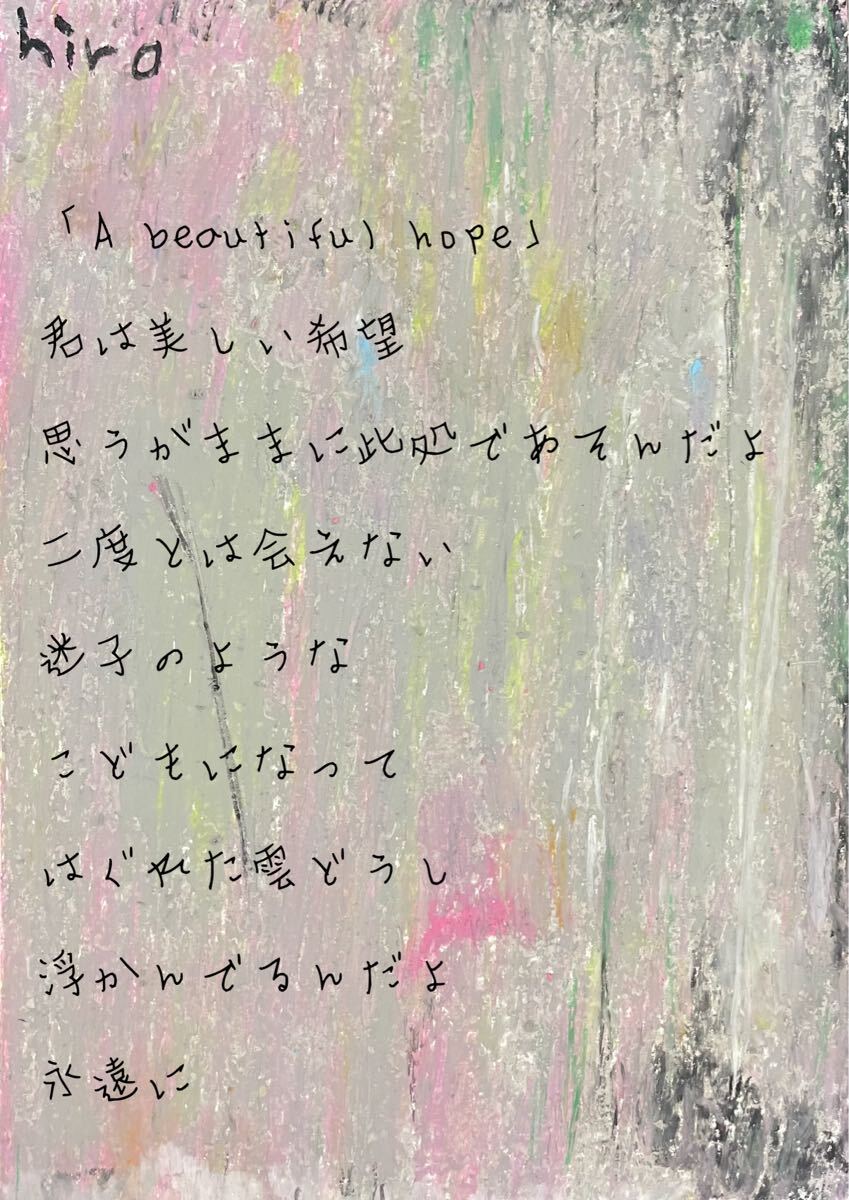 hiro
「A beautiful hope」
君は美しい希望
思うがままに此処であそんだよ
二度とは会えない
迷子のような
こどもになって
はぐれた雲どうし
浮かんでるんだよ
永遠に